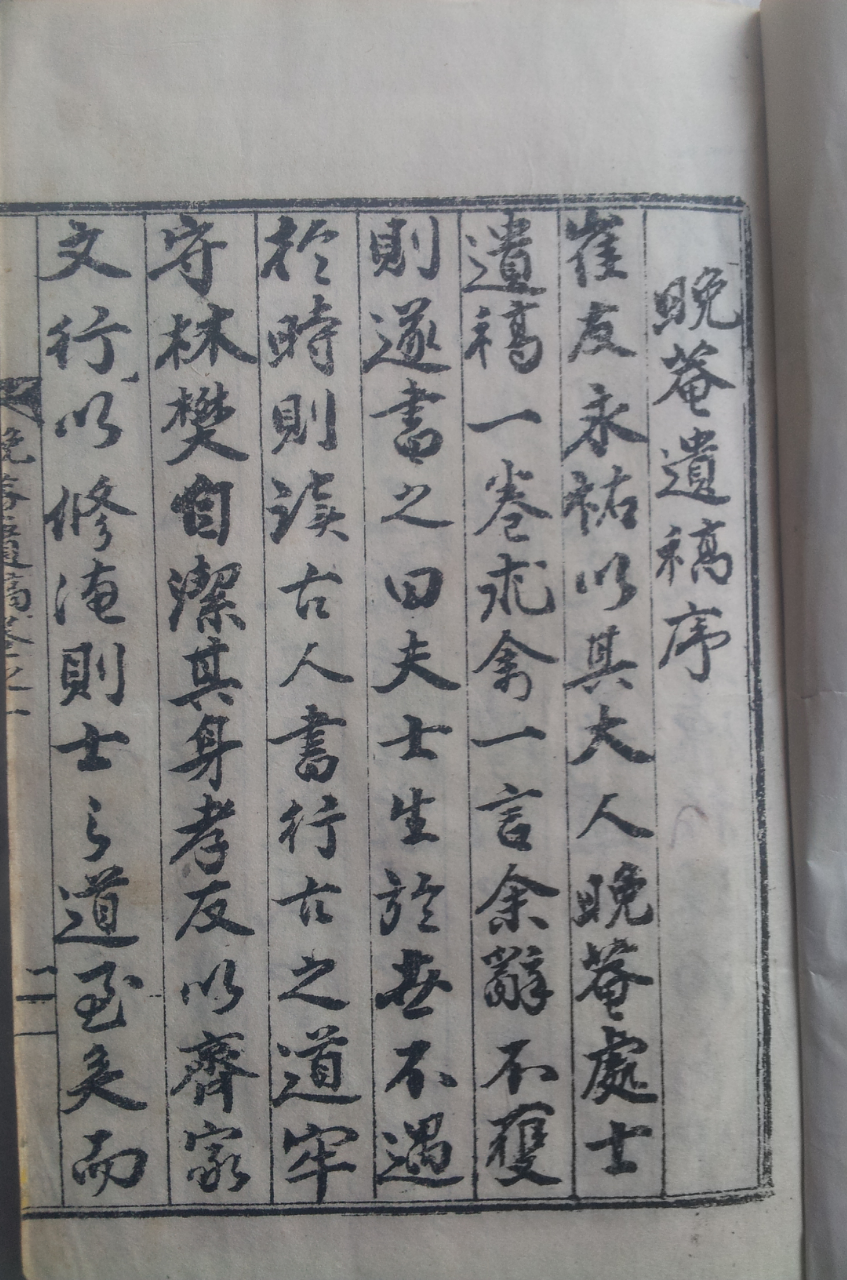 晩菴遺稿序
崔友永祐以其大人晩菴處士
遺稿一卷求余一言余辭不獲
則遂書之曰夫士生於世不遇
於時則讀古人書行古之道牢
守林樊自潔其身孝友以齊家
文行以修淹則士之道至矣而
晩菴遺稿卷之一